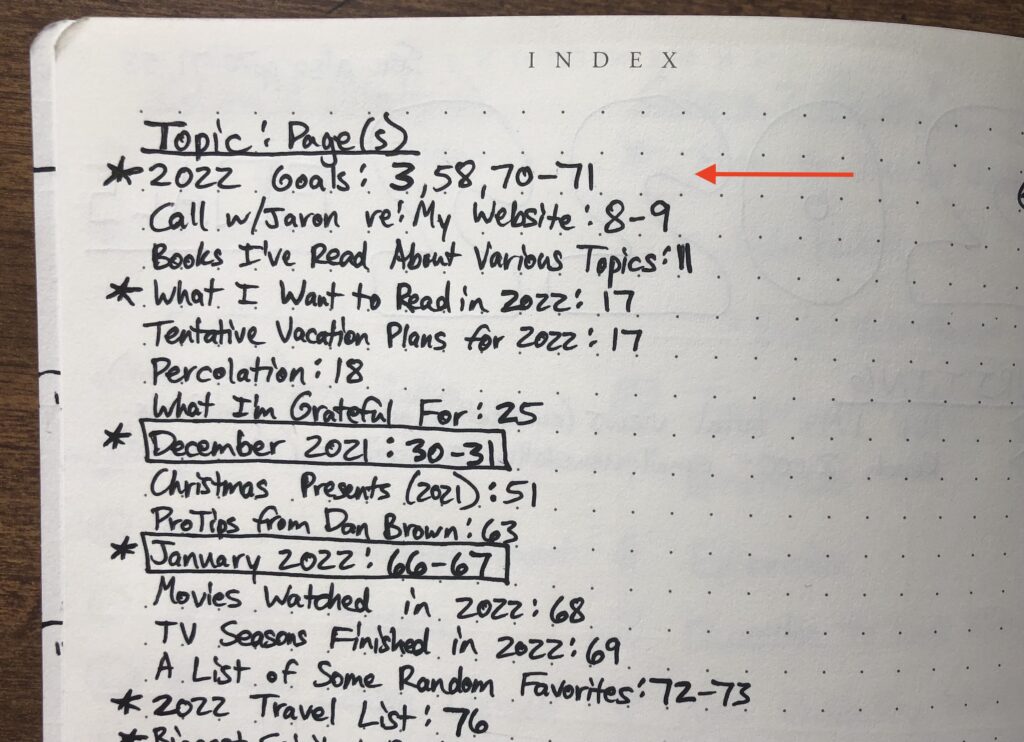 INDEX
Topic: Page(s)
* 2022 Goals: 3, 58, 70-71
Call w/Jaron re: My Website: 8-9
Books I've Read About Various Topics: 11
* What I Want to Read in 2022: 17
Tentative Vacation Plans for 2022: 17
Percolation: 18
What I'm Grateful For: 25
* December 2021: 30-31
Christmas Presents (2021): 51
ProTips from Dan Brown: 63
* January 2022: 66-67
Movies Watched in 2022: 68
TV Seasons Finished in 2022: 69
A List of Some Random Favorites: 72-73
* 2022 Travel List: 76
* Biggest